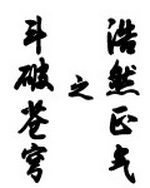 斗破苍穹
之
浩然正气